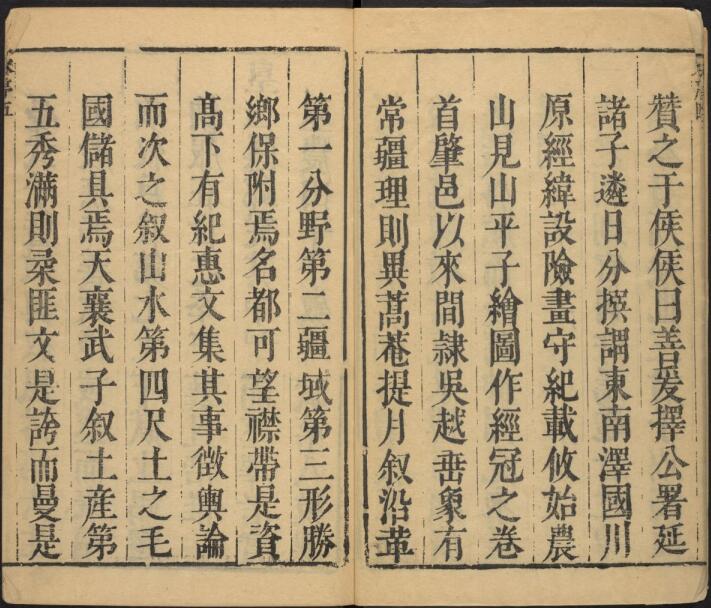 贊之于侯侯曰善爰擇公署延
諸子遴日分撰謂東南澤國川
原經緯設險畫守紀載攸始農
山見山平子繪圖作經冠之卷
首肇邑以來間隷吳越垂象有
常疆理則異蒿菴提月叙沿革
第一分野第二疆域第三形勝
鄉保附焉名都可望襟帶是資
高下有紀惠文集其事徴輿論
而次之叙山水第四尺土之毛
國儲具焉天襄武子叙土産第
五秀滿則采匪文是誇而曼是